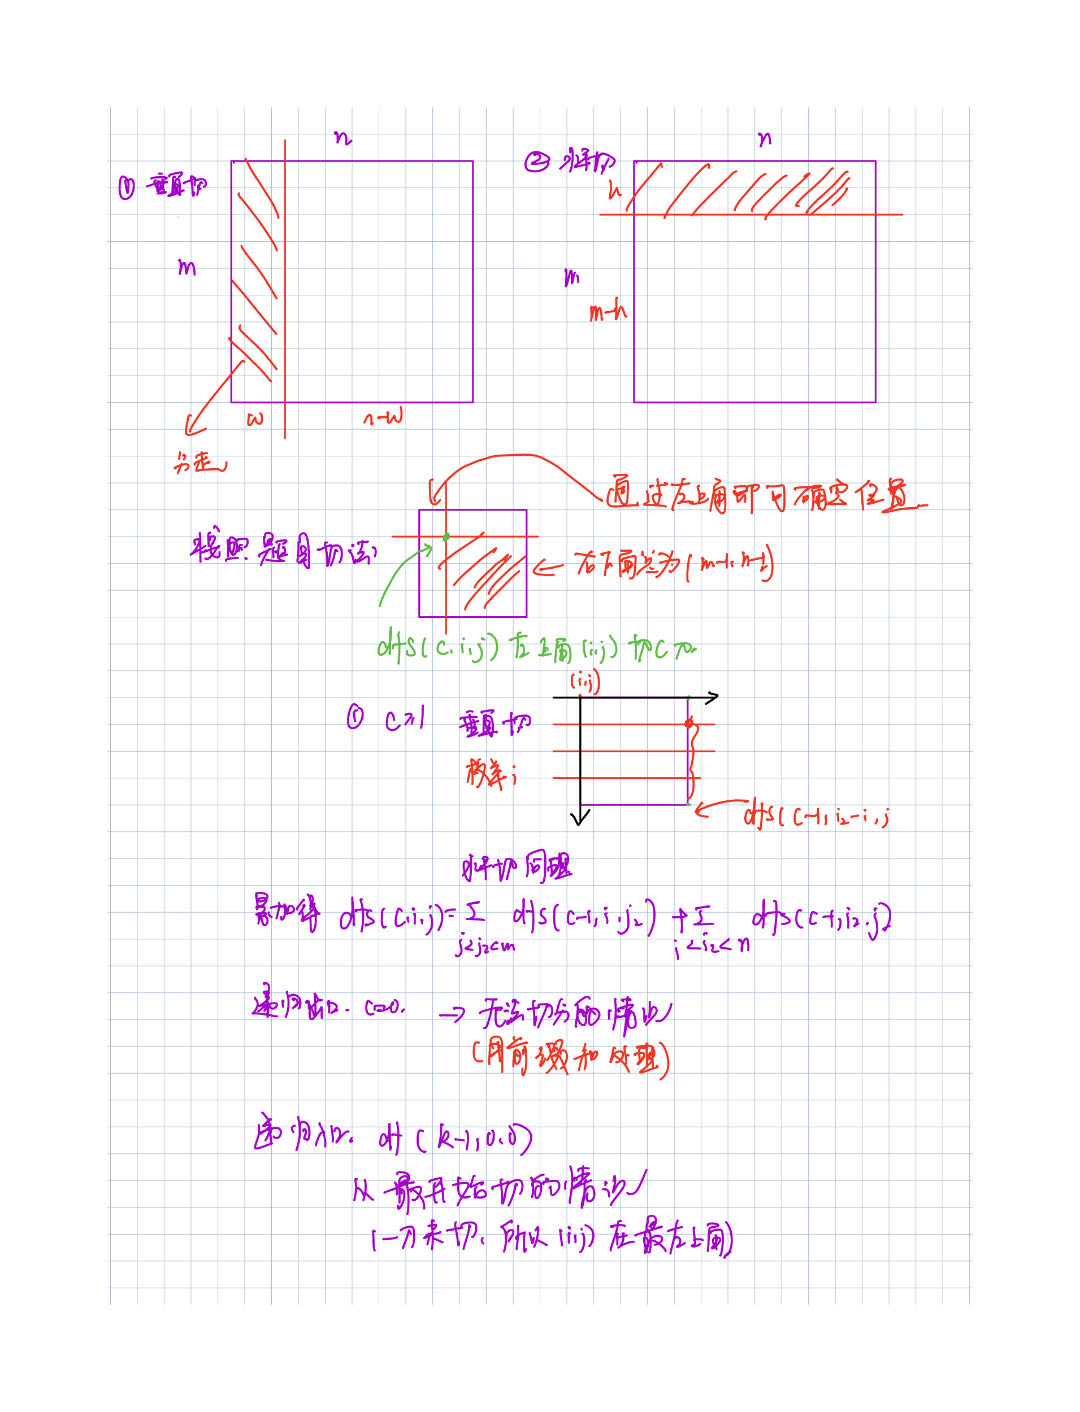 n
① 垂直切
m
w
n-w
分走
n
② 水平切
h
m
m-h
通过左上角即可确定位置
按照题目切法
右下角总为(m-1, n-1)
dfs(c,i,j) 左上角(i,j) 切c刀
(i,j)
① c≥1 垂直切
枚举j
dfs(c-1, i₂-i, j
水平切同理
累加得 dfs(c,i,j)= Σ dfs(c-1,i,j₂) + Σ dfs(c-1,i₂,j)
j<j₂<m i<i₂<n
递归出口. c=0. → 无法切分的情况
(用前缀和处理)
递归入口. df(k-1,0,0)
从最开始切的情况
(一刀未切, 所以(i,j)在最左上角)